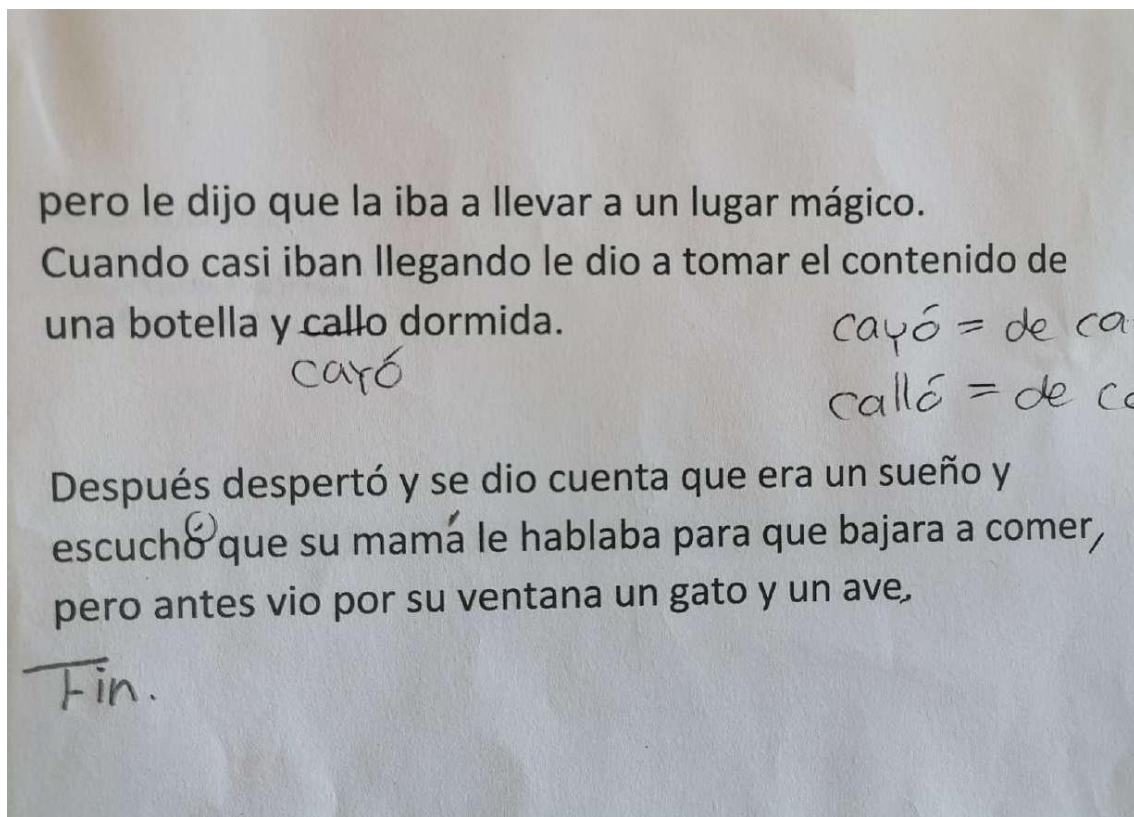 pero le dijo que la iba a llevar a un lugar mágico.
Cuando casi iban llegando le dio a tomar el contenido de
una botella y callo dormida.
cayó
cayó = de ca
calló = de ca
Después despertó y se dio cuenta que era un sueño y
escuchó que su mamá le hablaba para que bajara a comer,
pero antes vio por su ventana un gato y un ave,
Fin.